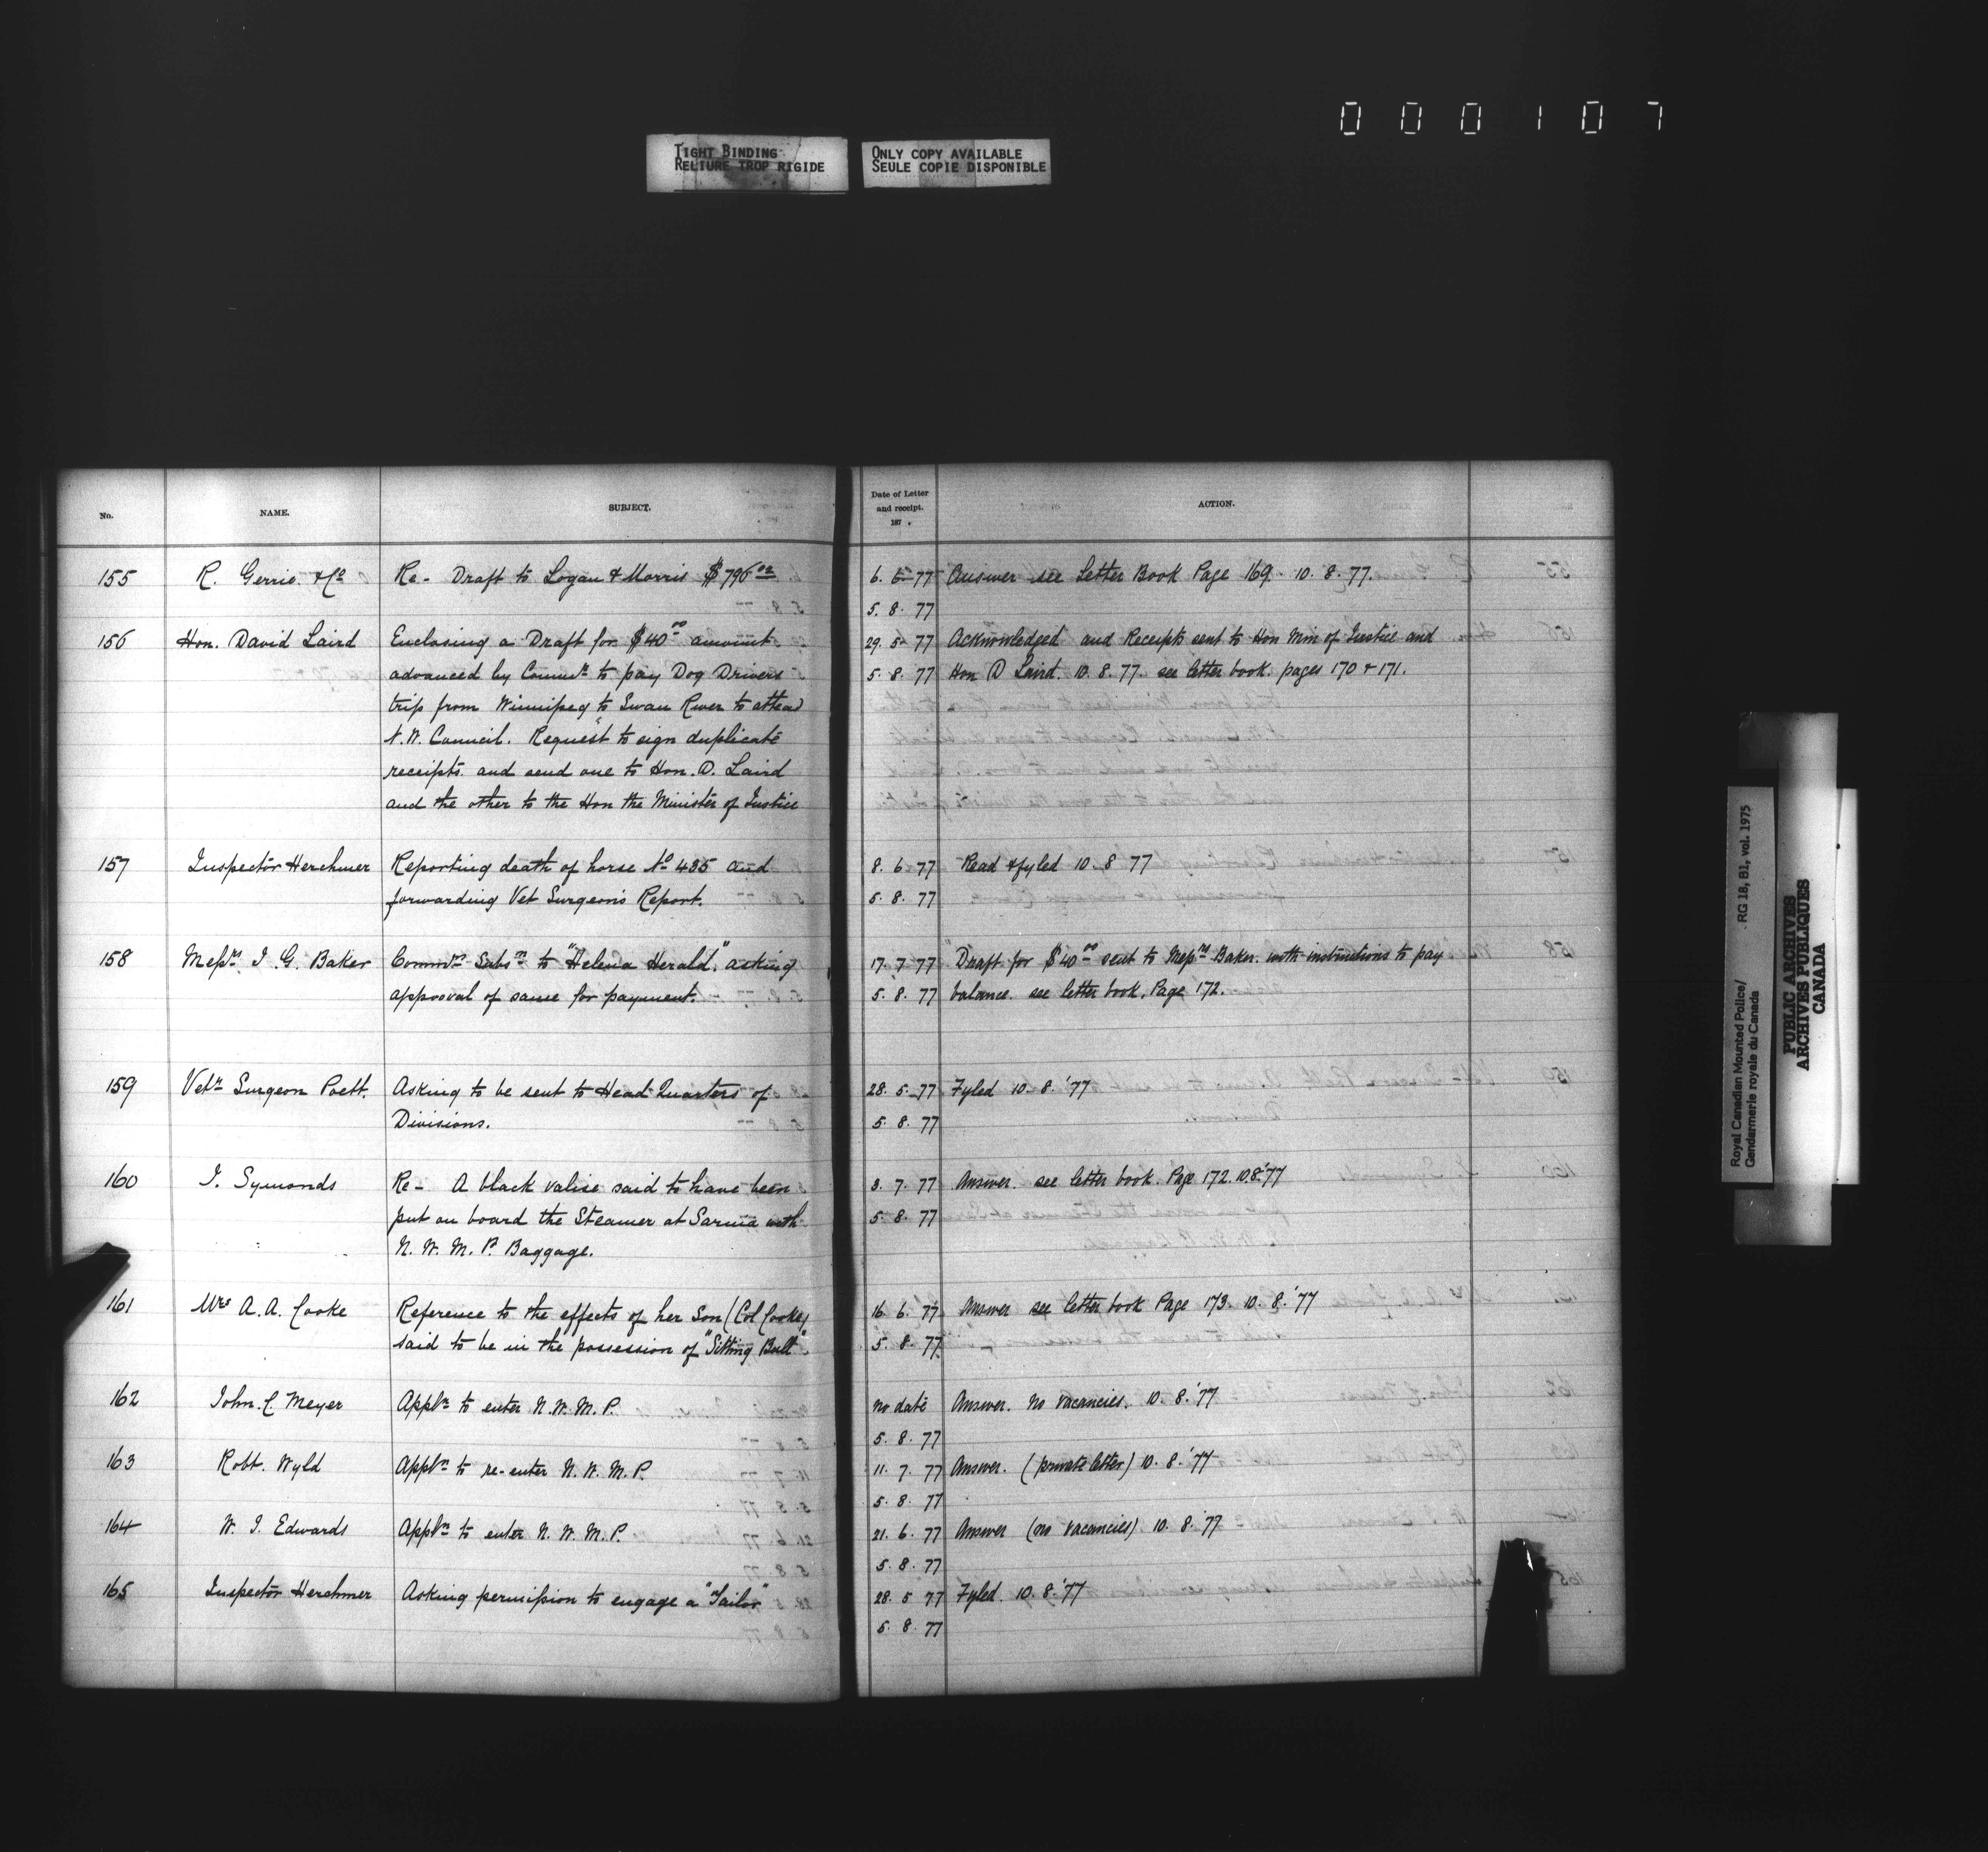 000107
TIGHT BINDING
RELIURE TROP RIGIDE
ONLY COPY AVAILABLE
SEULE COPIE DISPONIBLE
No. NAME. SUBJECT. Date of Letter and receipt. 187 . ACTION.
155 R. Gerrie & Co Re- Draft to Logan & Morris $796.02 6. 5- 77 Answer see Letter Book Page 169. 10. 8. 77.
5. 8. 77
156 Hon. David Laird Enclosing a Draft for $40.00 amount 29. 5- 77 Acknowledged and Receipts sent to Hon Min of Justice and
advanced by Commr to pay Dog Drivers 5. 8. 77 Hon D Laird. 10. 8. 77. see letter book. pages 170 & 171.
trip from Winnipeg to Swan River to attend
N.W. Council. Request to sign duplicate
receipts. and send one to Hon. D. Laird
and the other to the Hon the Minister of Justice
157 Inspector Herchmer Reporting death of horse No 435 and 8. 6. 77 Read & fyled 10. 8 77
forwarding Vet Surgeon's Report. 5. 8. 77
158 Messrs I. G. Baker Commrs Subsn to "Helena Herald". asking 17. 7 77 Draft for $40.00 sent to Messrs Baker. with instructions to pay
approval of same for payment. 5. 8. 77 balance. see letter book. Page 172.
159 Vetr Surgeon Poett. Asking to be sent to Head Quarters of 28. 5. 77 Fyled 10- 8. '77
Divisions. 5. 8. 77
160 J. Symonds Re- A black valise said to have been 3. 7. 77 Answer. see letter book. Page 172. 10.8.'77
put on board the Steamer at Sarnia with 5. 8. 77
N. W. M. P. Baggage.
161 Mrs A. A. Cooke Reference to the effects of her Son (Col Cooke) 16. 6. 77 Answer see letter book Page 173. 10. 8. '77
said to be in the possession of "Sitting Bull". 5. 8. 77
162 John. C Meyer Appln to enter N. W. M. P. no date Answer. no vacancies. 10. 8. '77
5. 8. 77
163 Robt. Wyld Appln to re-enter N. W. M. P. 11. 7. 77 Answer. (private letter) 10. 8. '77
5. 8. 77
164 W. J. Edwards Appln to enter N. W. M. P. 21. 6. 77 Answer (no vacancies) 10. 8. '77
5. 8. 77
165 Inspector Herchmer Asking permission to engage a "Tailor" 28. 5 77 Fyled. 10. 8. '77
5. 8. 77
Royal Canadian Mounted Police/ RG 18, B1, vol. 1975
Gendarmerie royale du Canada
PUBLIC ARCHIVES
ARCHIVES PUBLIQUES
CANADA